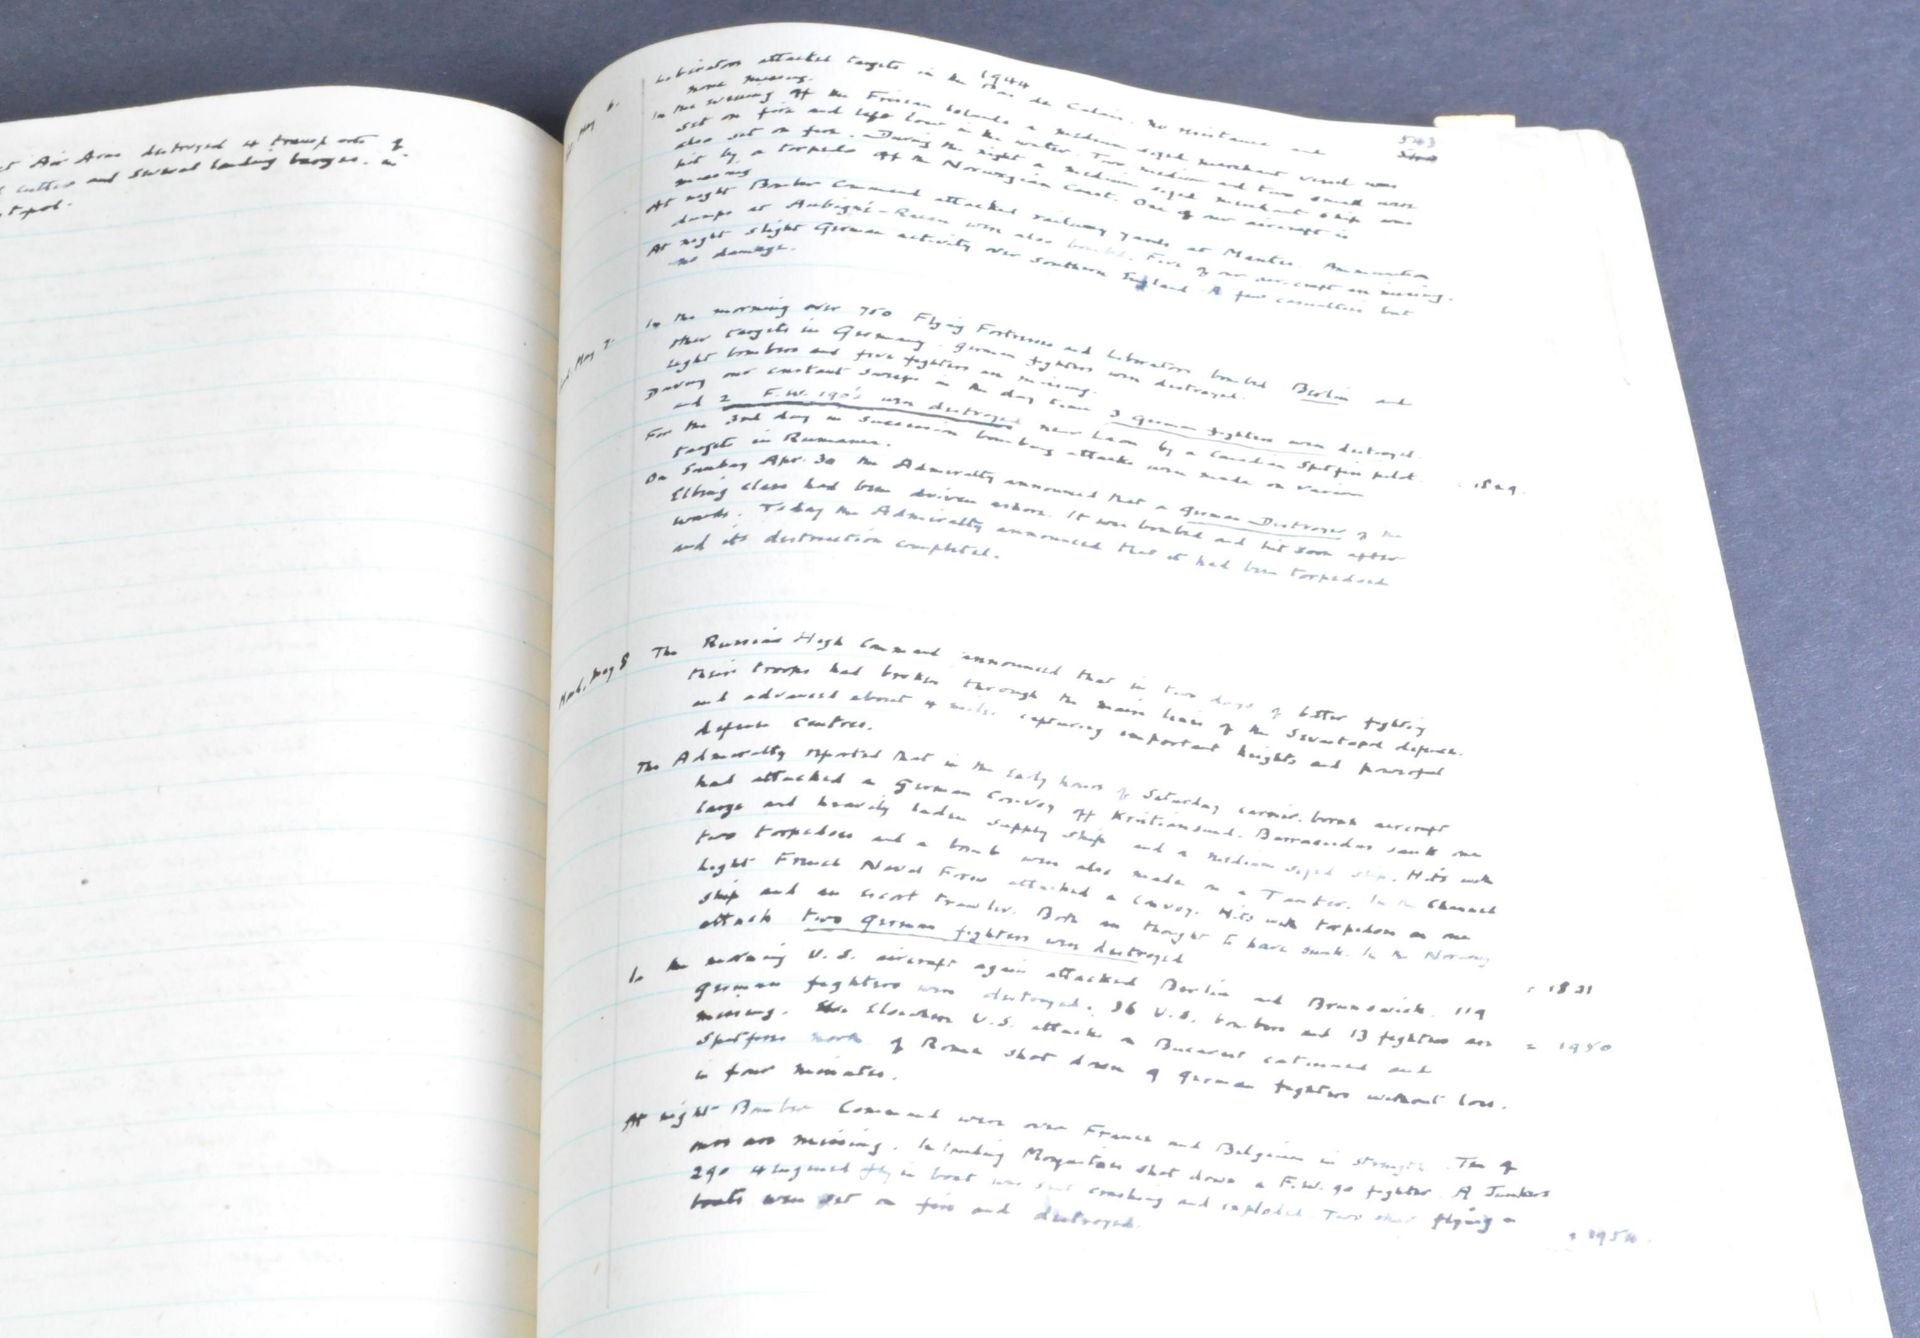 Air Arm destroyed 4 transports of
cutters and several landing barges. in
1944
543
Liberators attacked targets in the Pas de Calais. No resistance and
none missing.
May 6.
In the evening off the Frisian Islands a medium sized merchant vessel was
set on fire and left low in the water. Two medium and two small were
also set on fire. During the night a medium sized merchant ship was
hit by a torpedo off the Norwegian Coast. One of our aircraft is
missing
At night Bomber Command attacked railway yards at Mantes. Ammunition
dumps at Aubigné-Racan were also bombed. Five of our aircraft are missing.
At night slight German activity over Southern England. A few casualties but
no damage.
May 7.
In the morning over 750 Flying Fortresses and Liberators bombed Berlin and
other targets in Germany. German fighters were destroyed.
Eight bombers and five fighters are missing.
During our constant sweeps in the day time 3 German fighters were destroyed.
and 2 F.W. 190's were destroyed near Laon by a Canadian Spitfire pilot.
= 1829.
For the 3rd day in succession bombing attacks were made on various
targets in Rumania.
On Sunday Apr. 30 the Admiralty announced that a German Destroyer of the
Elbing class had been driven ashore. It was bombed and hit soon after
wards. Today the Admiralty announced that it had been torpedoed
and its destruction completed.
Mond, May 8
The Russian High Command announced that in two days of bitter fighting
their troops had broken through the main lines of the Sevastopol defence.
and advanced about 4 miles capturing important heights and powerful
defence centres.
The Admiralty reported that in the early hours of Saturday carrier borne aircraft
had attacked a German Convoy off Kristiansund. Barracudas sank one
large and heavily laden supply ship and a medium sized ship. Hits with
two torpedoes and a bomb were also made on a Tanker. In the Channel
light French Naval Forces attacked a Convoy. Hits with torpedoes on one
ship and an escort trawler. Both are thought to have sunk. In the Norway
attack two German fighters were destroyed
= 1831
In the morning U.S. aircraft again attacked Berlin and Brunswick. 119
German fighters were destroyed. 36 U.S. bombers and 13 fighters are
= 1950
missing. Elsewhere U.S. attacks on Bucarest continued and
Spitfires north of Rome shot down 4 German fighters without loss.
in four minutes.
At night Bomber Command were over France and Belgium in strength. Ten of
ours are missing. Intruding Mosquitoes shot down a F.W. 90 fighter. A Junkers
290 4 engined flying boat was sent crashing and exploded Two other flying
boats were set on fire and destroyed.
= 1954.